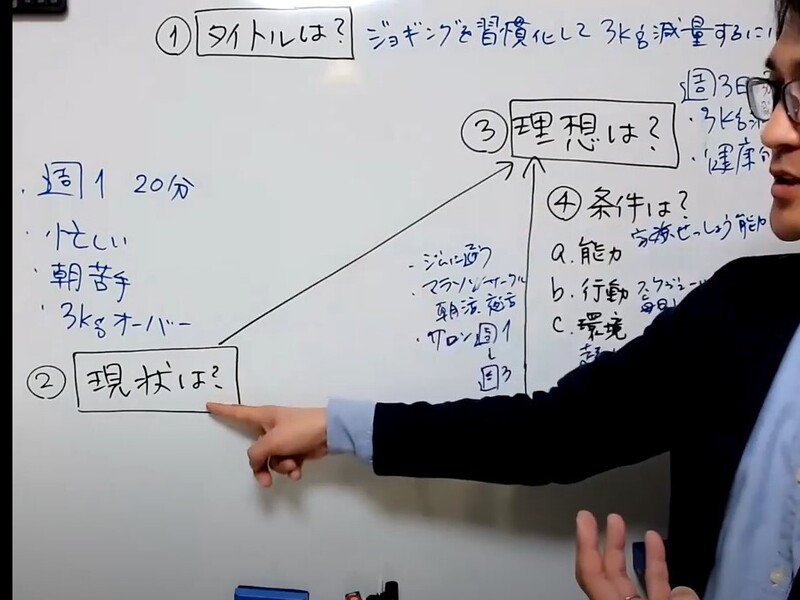 ① タイトルは? ジョギングを習慣化して 3kg減量するに
③ 理想は?
週3日
・3kg
・健康的
・週1 20分
・忙しい
・朝苦手
・3kgオーバー
② 現状は?
・ジムに通う
・マラソンサークル
朝活 夜活
・サロン週1
↓
週3
④ 条件は?
a. 能力
能力
b. 行動 スケジュール
毎日
c. 環境